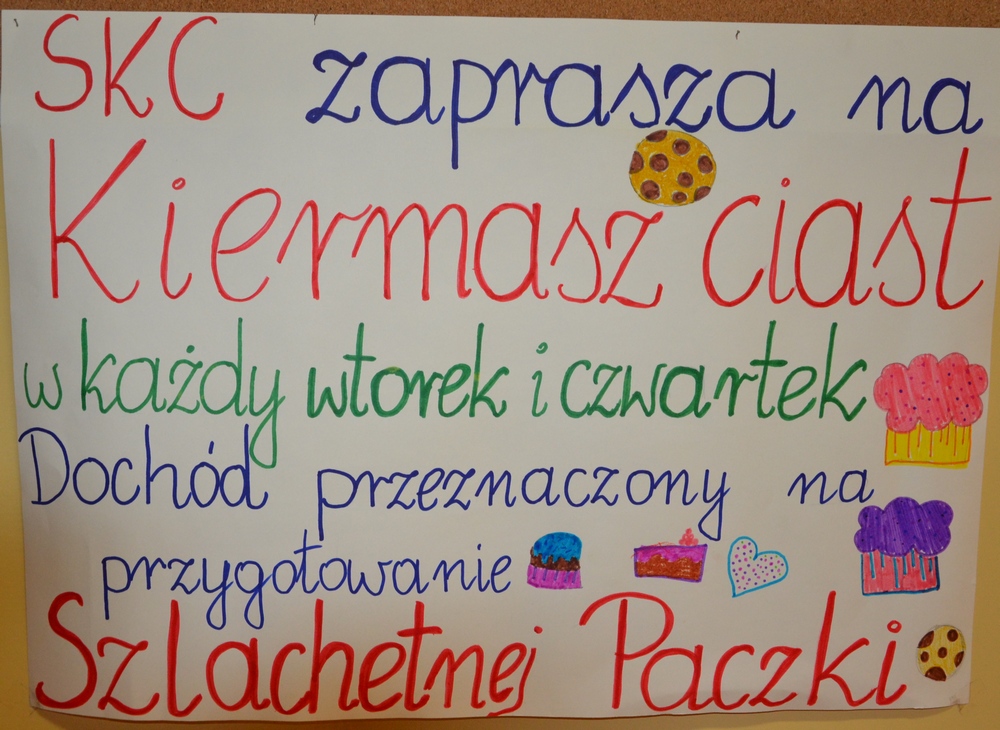 SKC zaprasza na
Kiermasz ciast
w każdy wtorek i czwartek
Dochód przeznaczony na
przygotowanie
Szlachetnej Paczki